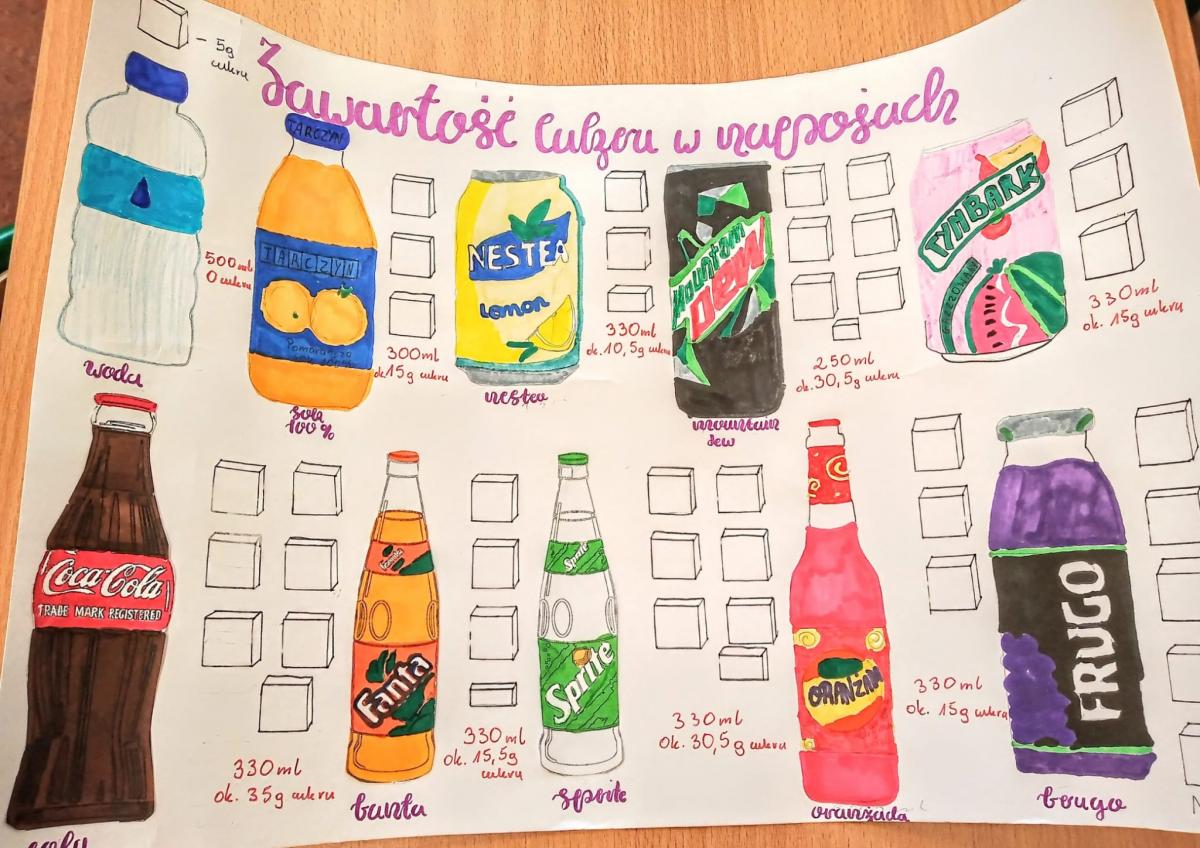 - 5g
cukru
Zawartość Cukru w napojach
TARCZYN
TARCZYN
Pomarańcza
500ml
0 cukru
300ml
ok. 15g cukru
NESTEA
Lemon
330ml
ok. 10,5g cukru
Mountain
DEW
250ml
ok. 30,5g cukru
TYMBARK
330ml
ok. 15g cukru
woda
sok
100%
nestea
mountain
dew
Coca-Cola
TRADE MARK REGISTERED
330ml
ok. 35g cukru
Fanta
Fanta
330ml
ok. 15,5g
cukru
Sprite
Sprite
330ml
ok. 30,5g cukru
ORANŻADA
330ml
ok. 15g cukru
FRUGO
cola
fanta
sprite
oranżada
frugo